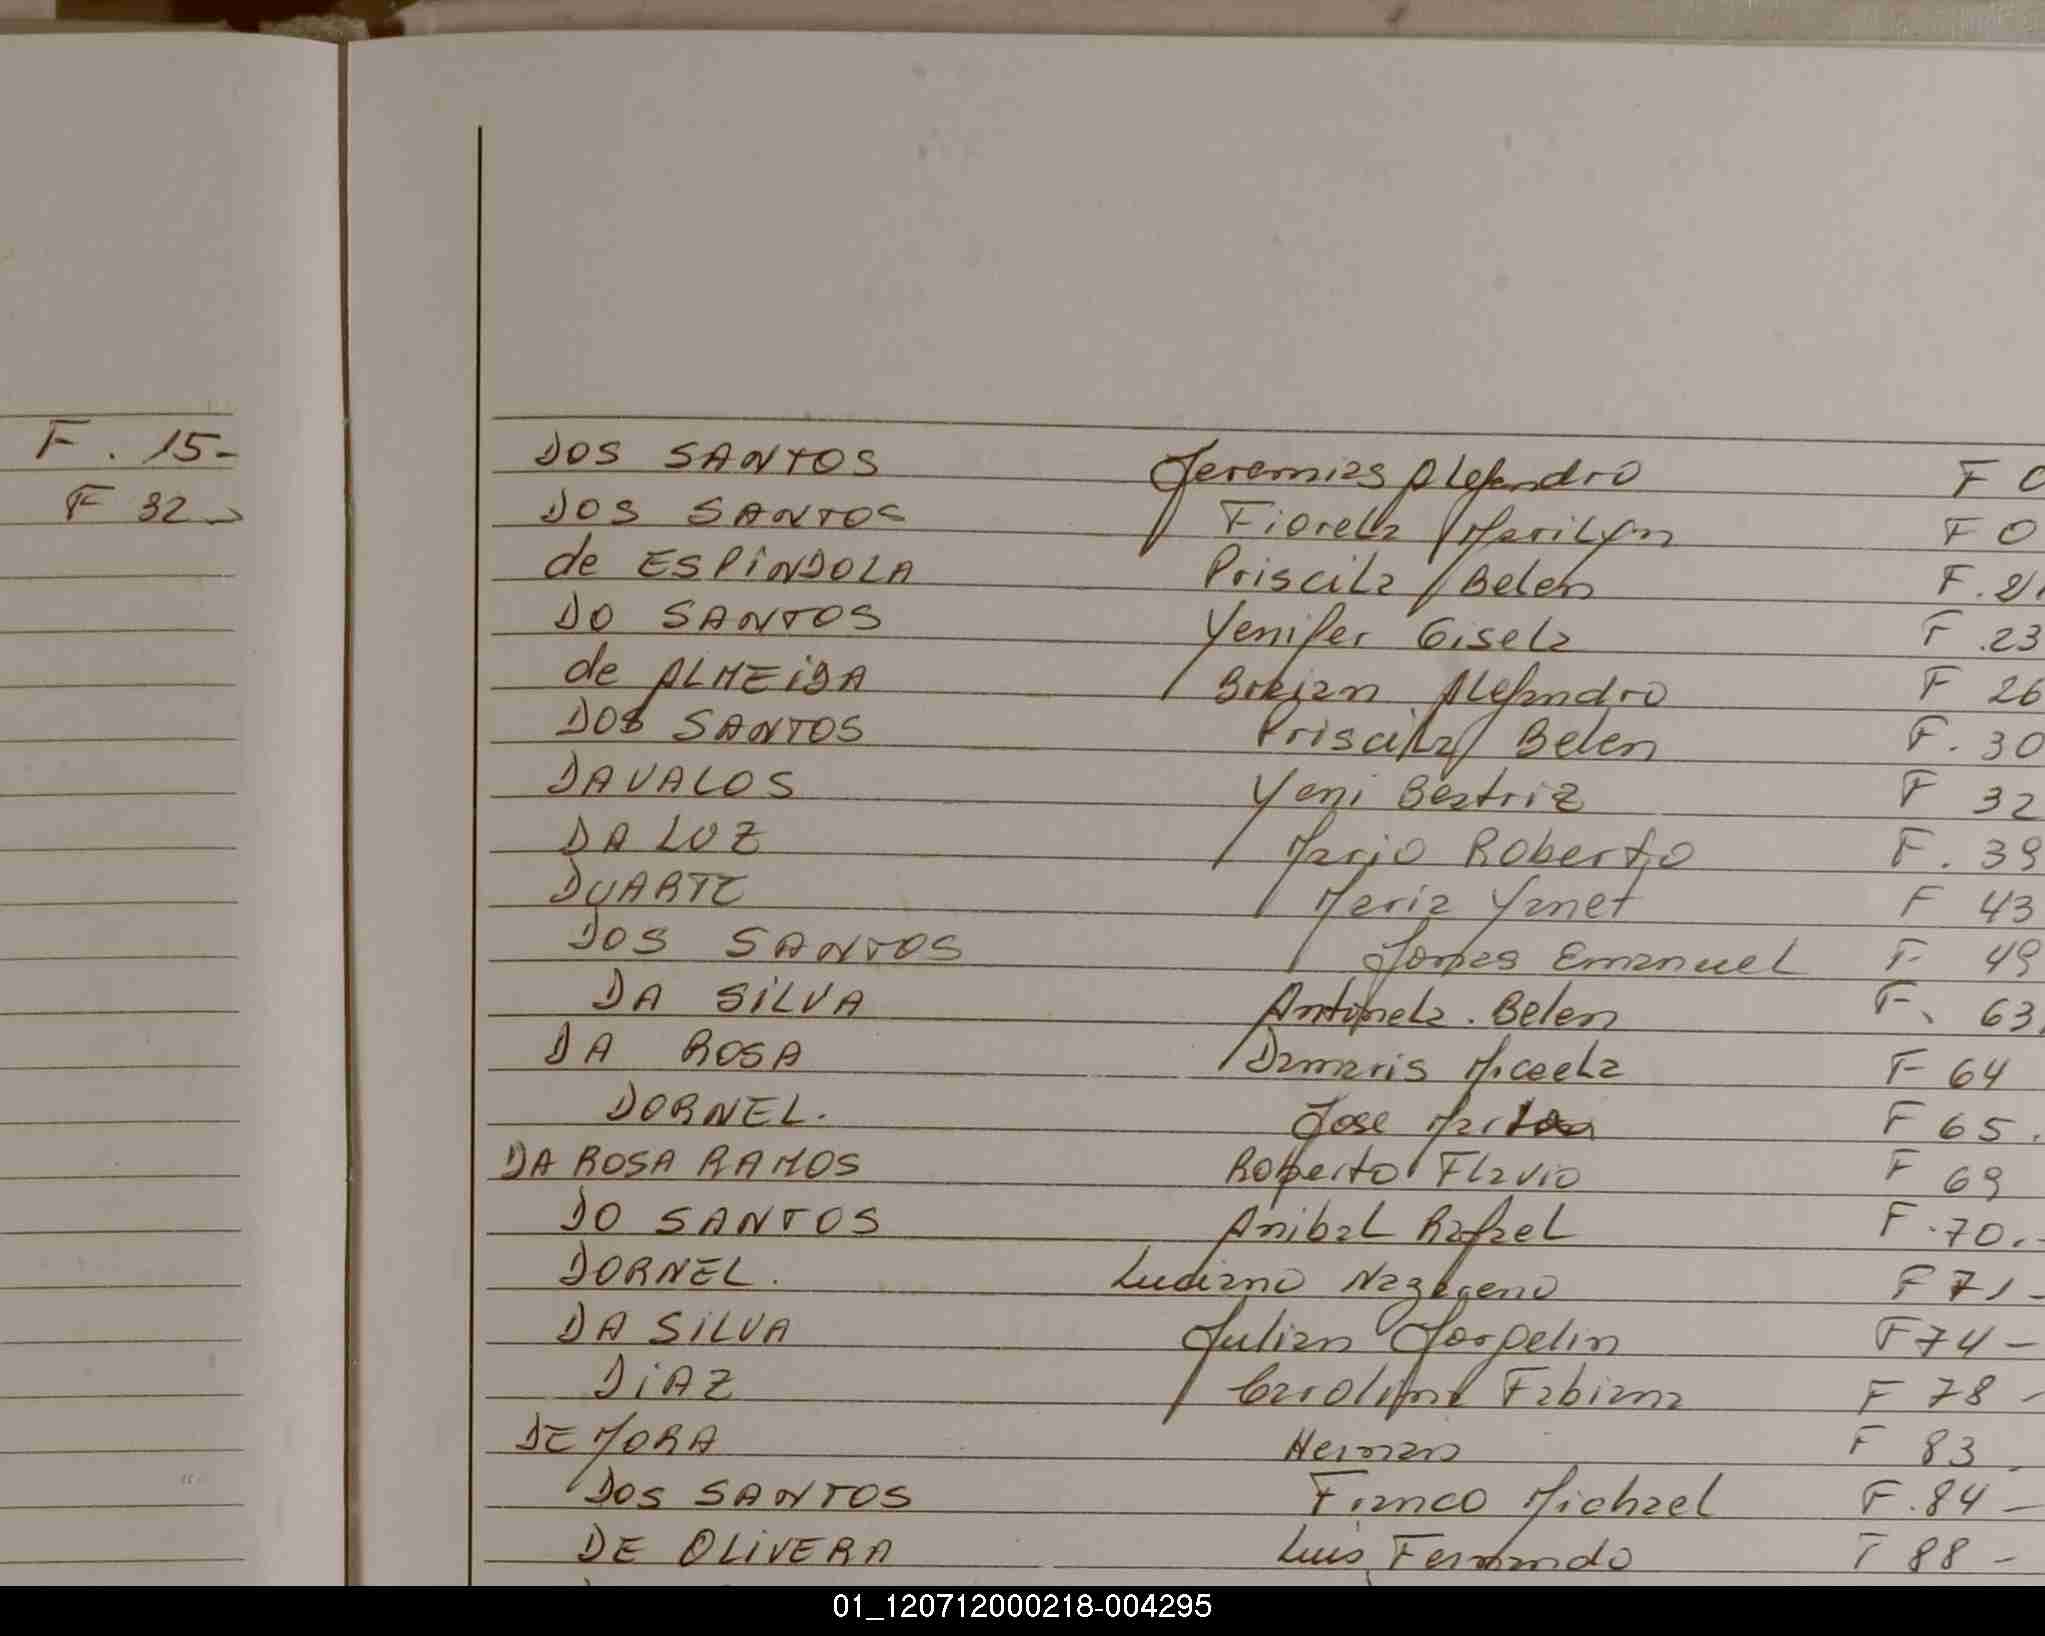 F. 15-
F 32-
DOS SANTOS Jeremias Alejandro F 0
DOS SANTOS Fiorela Marilyn F 0
de ESPINDOLA Priscila Belen F. 21
DO SANTOS Yenifer Gisela F .23
de ALMEIDA Braian Alejandro F 26
DOS SANTOS Priscila Belen F. 30
DAVALOS Yeni Beatriz F 32
DA LUZ Mario Roberto F. 39
DUARTE Maria Yanet F 43
DOS SANTOS Emanuel F 49
DA SILVA Antonela. Belen F. 63
DA ROSA Damaris Micaela F 64
DORNEL. Jose F 65.
DA ROSA RAMOS Roberto Flavio F 69
DO SANTOS Anibal Rafael F. 70.-
DORNEL. Luciano Nazareno F 71-
DA SILVA Julian F 74-
DIAZ Carolina Fabiana F 78-
DE MORA Hernan F 83
DOS SANTOS Franco Michael F. 84-
DE OLIVERA Luis Fernando F 88-
01_120712000218-004295